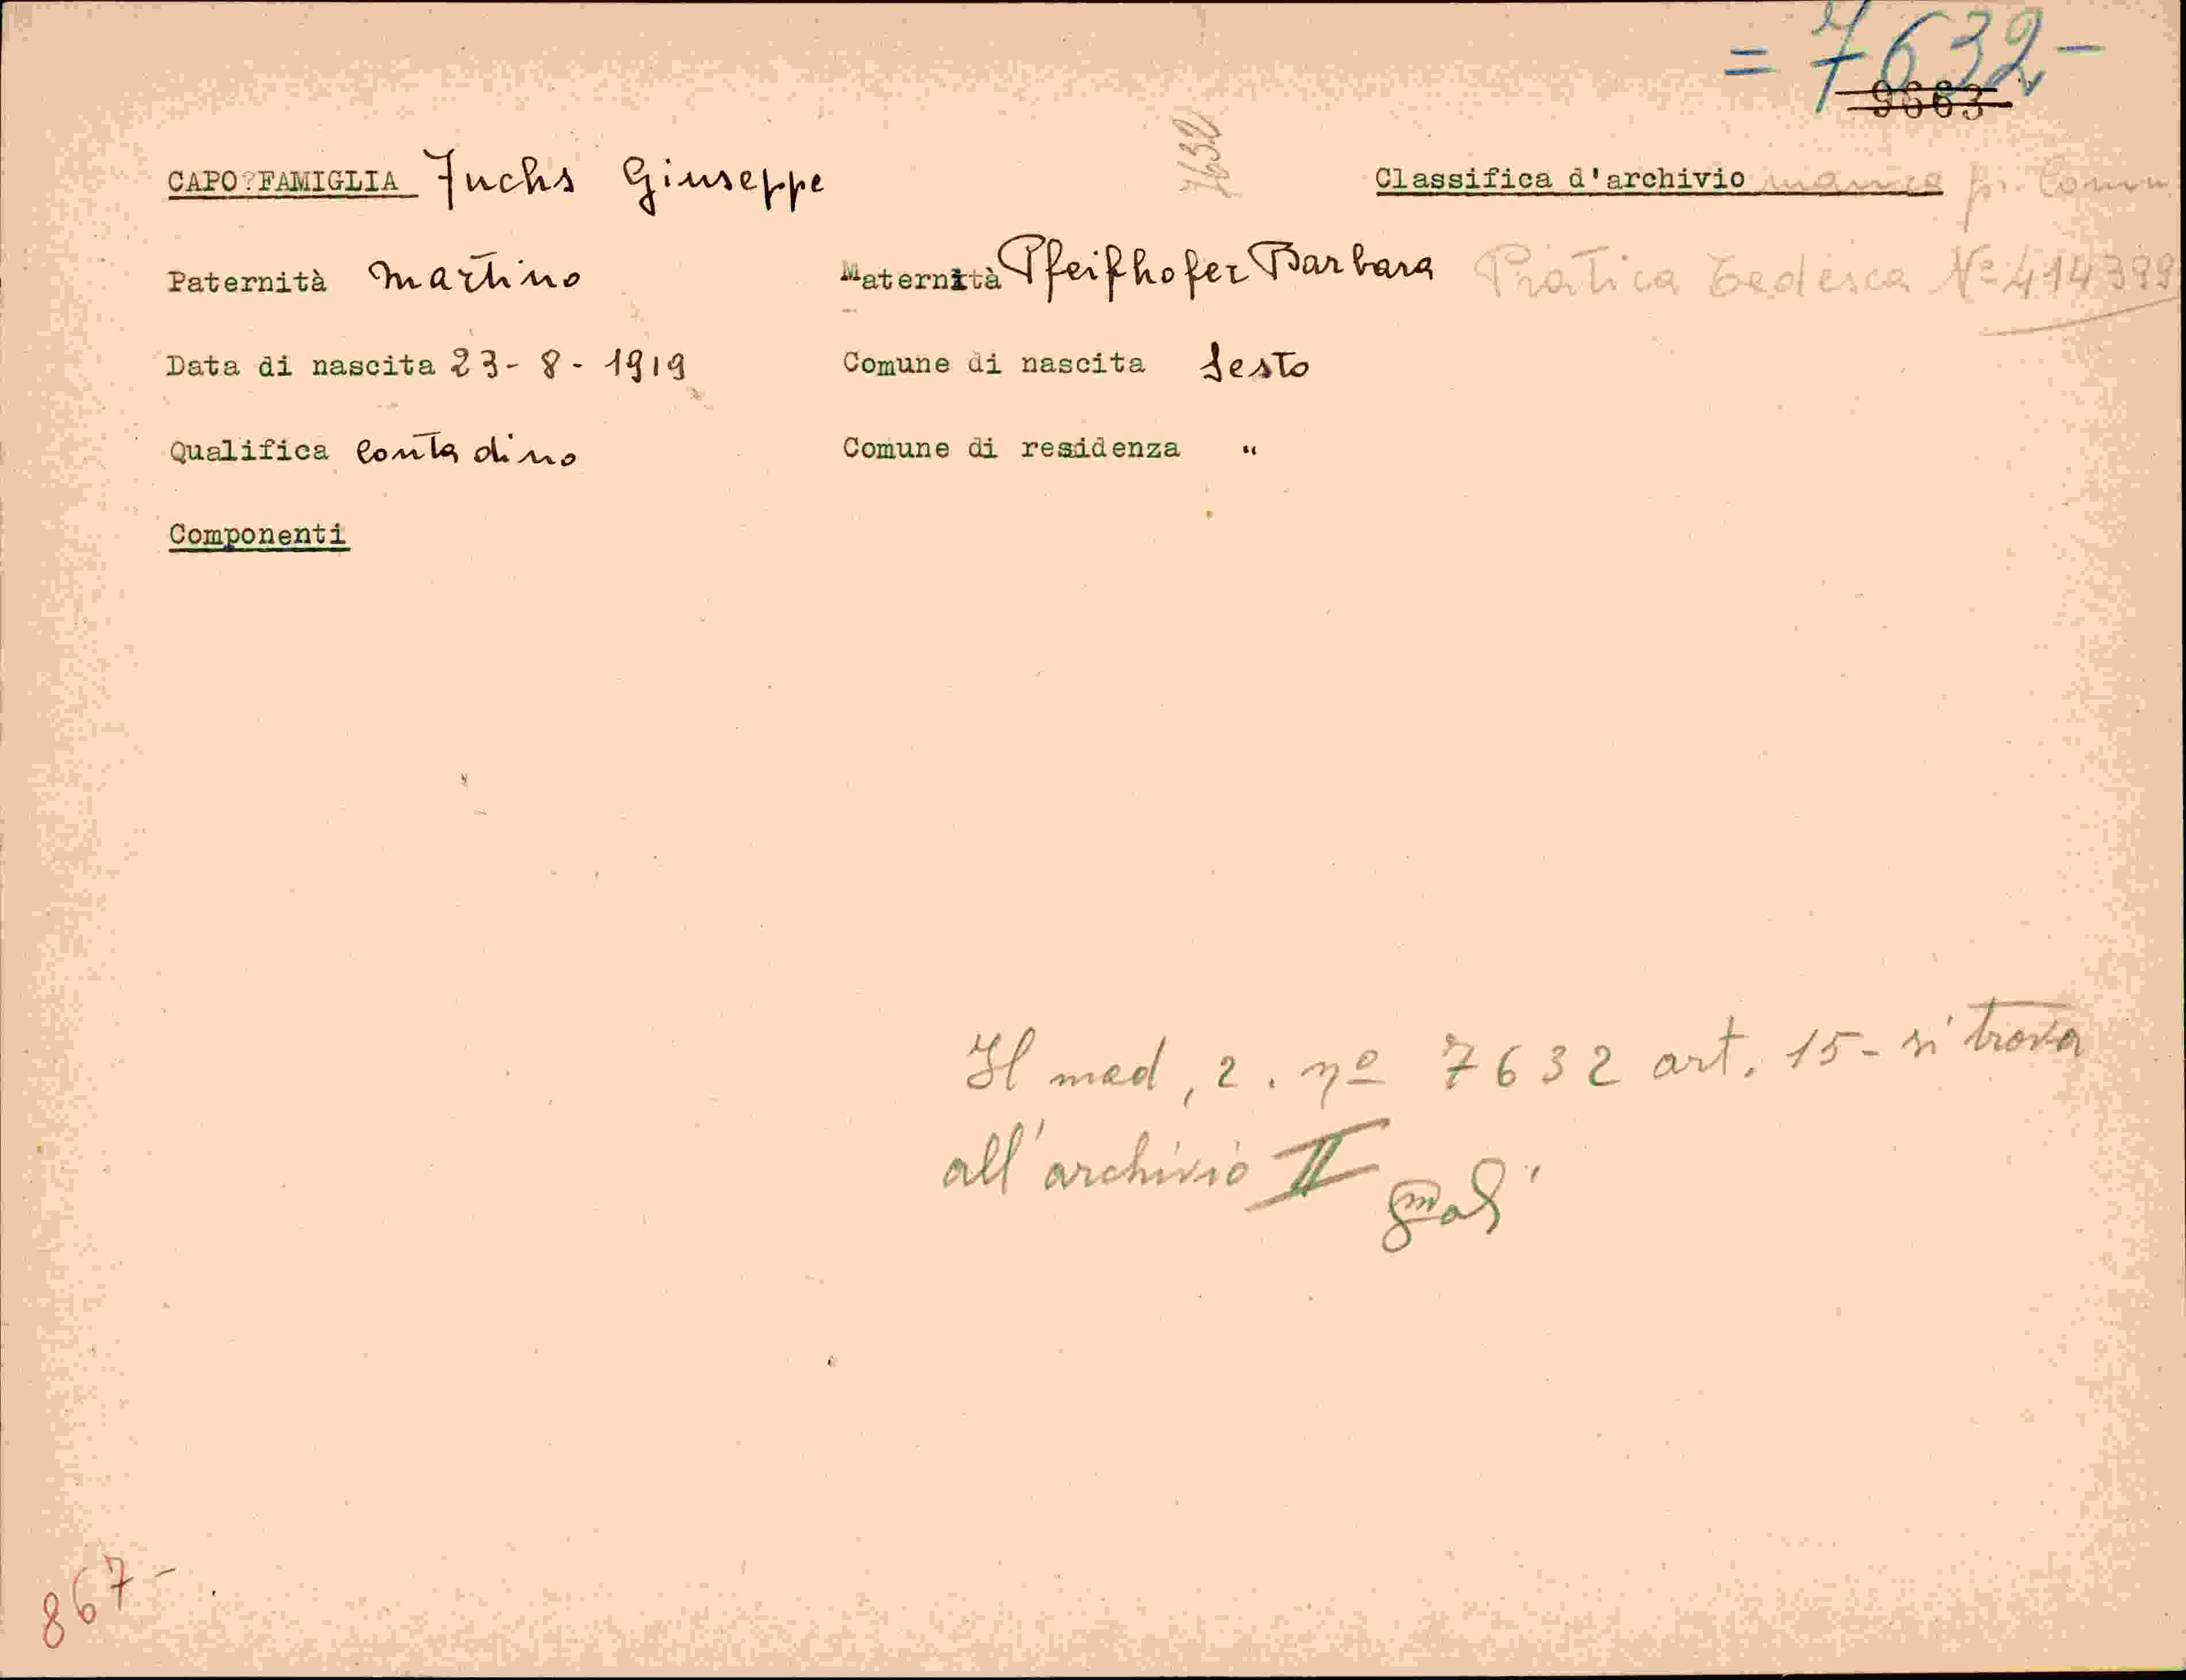 = 7632 -
9663
7632
CAPO?FAMIGLIA Fuchs Giuseppe Classifica d'archivio manca pr. Comun
Paternità Martino Maternità Pfeifhofer Barbara Pratica tedesca Nº 414399
Data di nascita 23-8-1919 Comune di nascita Sesto
Qualifica Contadino Comune di residenza "
Componenti
Il mod, 2. nº 7632 art. 15- si trova
all'archivio II
867-